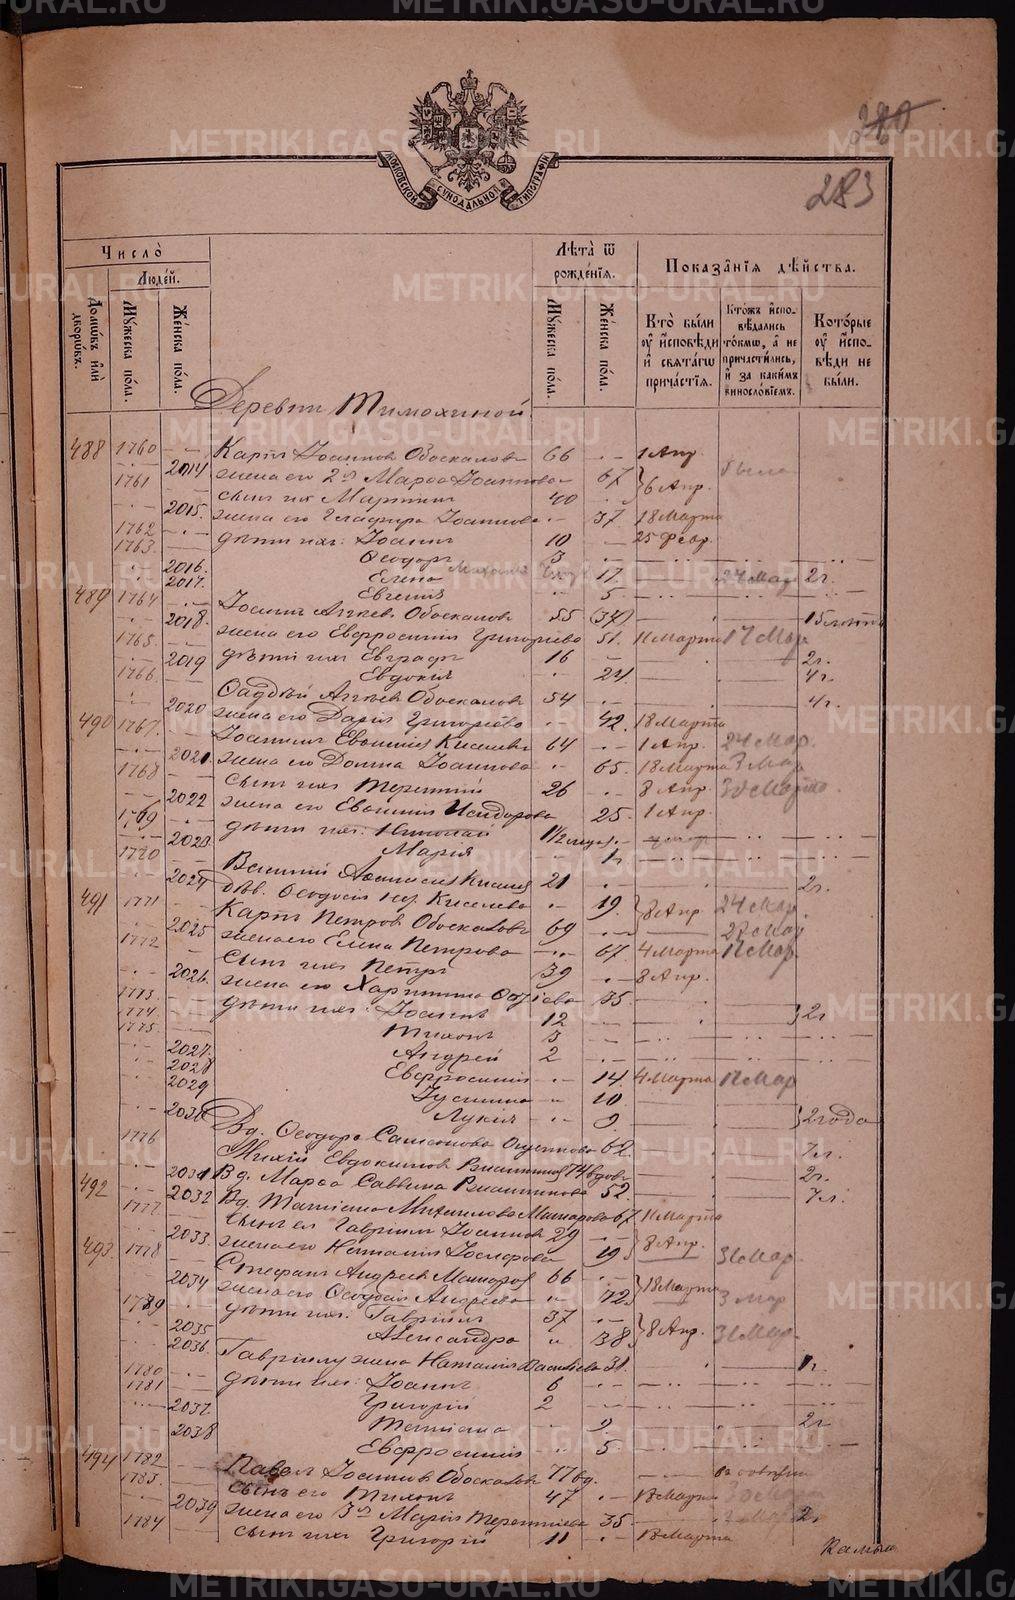 380
283
МОСКОВСКОЙ СУНОДАЛЬНОЙ ТИПОГРАФІИ
Число̀
Людей.
Домѡвъ или̂ дворѡвъ.
Мꙋжеска по́ла.
Же́нска по́ла.
Лѣта̀ ѿ рожде́нїѧ.
Мꙋжеска по́ла.
Же́нска по́ла.
Показа́нїѧ дѣ́йства.
Кто̀ бы́ли ᲂу҆ и҆сповѣ́ди и҆ свѧта́гѡ прича́стїѧ.
Кто́жъ и҆спо-вѣ́дались то́кмѡ, а҆ не причасти́лись, и҆ за каки́мъ винословїемъ.
Кото́рые ᲂу҆ и҆спо-вѣди не бы́ли.
Деревни Тимохиной
488 1760 Карпъ Іоанновъ Обоскаловъ 66 1 Апр.
2014 жена его 2я Марѳа Іоаннова 67 6 Апр.
1761 сынъ ихъ Мартинъ 40
2015. жена его Глафира Іоаннова 37 18 Марта
1762 дѣти ихъ: Іоаннъ 10 25 Февр.
1763. Ѳеодоръ 3
2016. Елена 17 2 г.
2017. Евгенія 5
489 1764 Іоаннъ Обоскаловъ 55 (37) 15 лѣтъ
2018. жена его Евфросинія Григорьева 51. 11 Марта 17 Мар.
1765. дѣти ихъ Евграфъ 16 2 г.
2019 Евдокія 24 4 г.
1766 Обоскаловъ 54 4 г.
2020 жена его Дарія Григорьева 42. 18 Марта
490 1767. Іоаннъ Киселевъ 64 1 Апр. 24 Мар.
2021. жена его Домна Іоаннова 65. 18 Марта 3 Мар
1768 сынъ ихъ Терентій 26 8 Апр. 30 Марта
2022 жена его Евѳимія Исидорова 25. 1 Апр.
1769 дѣти ихъ: Николай 1 1/2
2023. Марія
1770 Василій 21 2 г.
2024 дѣв. Ѳеодосія Киселева 19 8 Апр. 24 Мар
491 1771 Карпъ Петровъ Обоскаловъ 69
2025 жена его Елена Петрова 67. 4 Марта 17 Мар.
1772 сынъ ихъ Петръ 39 8 Апр.
2026. жена его Харитина 35
1773. дѣти ихъ: Іоаннъ 12 2 г
1774. Тихонъ 3
1775. Андрей 2
2027. Евфросинія 14 4 Марта 17 Мар
2028 Іустина 10
2029 Лукія 9 2 года
2030 Вд. Ѳеодора Самсонова 62. 7 г.
1776 Михій Евдокимовъ 74 вдовъ 2 г.
492 2031 Вд. Марѳа Саввина 52 7 г.
2032 Вд. Татіана Михаилова 67 11 Марта
1777. сынъ ея Гавріилъ Іоанновъ 29 8 Апр.
2033. жена его Наталія Іосифова 19 31 Мар
493 1778 Стефанъ Андреевъ 66 18 Марта
2034 жена его Ѳеодосія Андреева 72 3 Мар
1779 дѣти ихъ: Гавріилъ 37 8 Апр.
2035 Александра 38 31 Мар.
2036. Гавріилу жена Наталія Васильева 31. 1 г.
1780 дѣти ихъ: Іоаннъ 6
1781 Григорій 2
2037. Татіана 9 2 г
2038 Евфросинія 5
494 1782 Павелъ Іоанновъ Обоскаловъ 77 вд.
1783. сынъ его Тихонъ 47 18 Марта 30 Марта
2039 жена его 3я Марія Терентіева 35 2 г
1784 сынъ ихъ Григорій 11 18 Марта